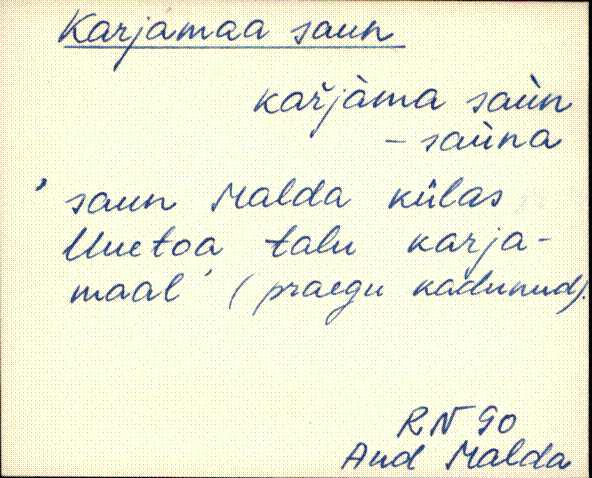 Karjamaa saun
kaŕjàma saùn
- saùna
' saun Malda külas
Uuetoa talu karja-
maal' (praegu kadunud).
RN 90
Aud Malda